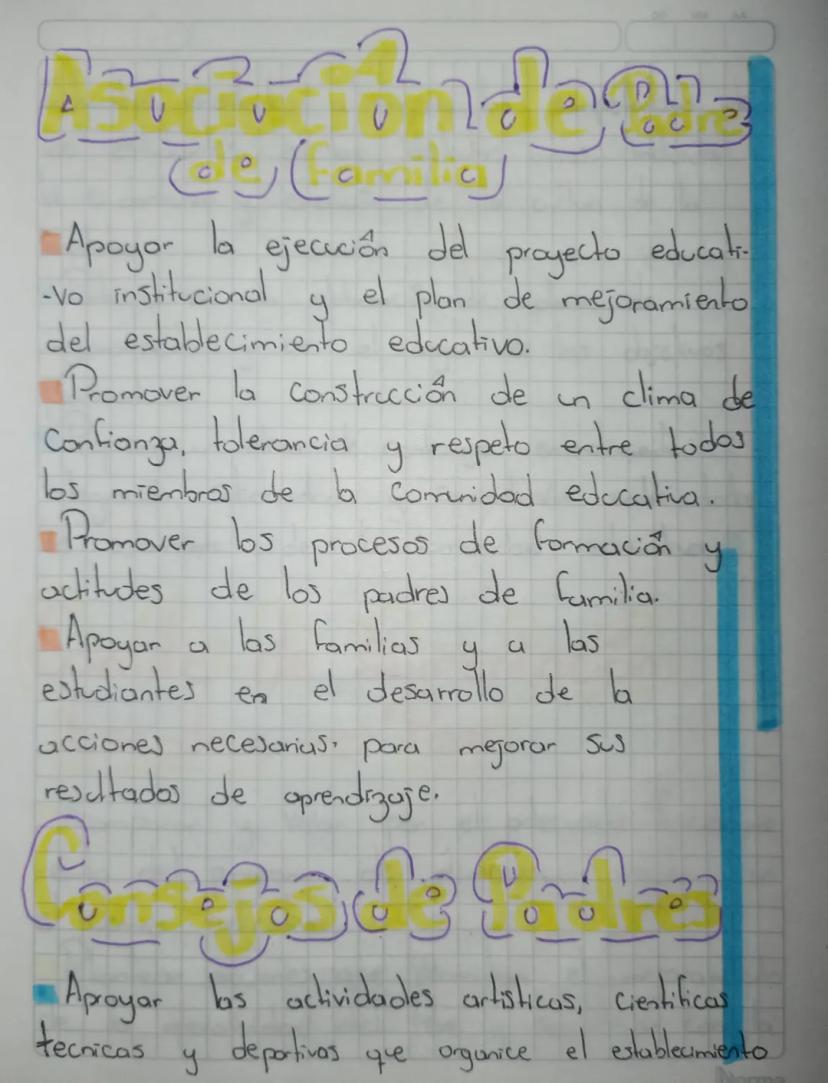 Asociación de Padre
de familia
Apoyar la ejecución del proyecto educati-
-vo institucional y el plan de mejoramiento
del establecimiento educativo.
Promover la construcción de un clima de
confianza, tolerancia y respeto entre todos
los miembros de la comunidad educativa.
Promover los procesos de formación y
actitudes de los padres de familia.
Apoyar a las familias y a las
estudiantes en el desarrollo de la
acciones necesarias. para mejorar sus
resultados de aprendizaje.
Consejos de Padres
Aproyar las actividades artisticas, cientificas
tecnicas y deportivas que organice el establecimiento